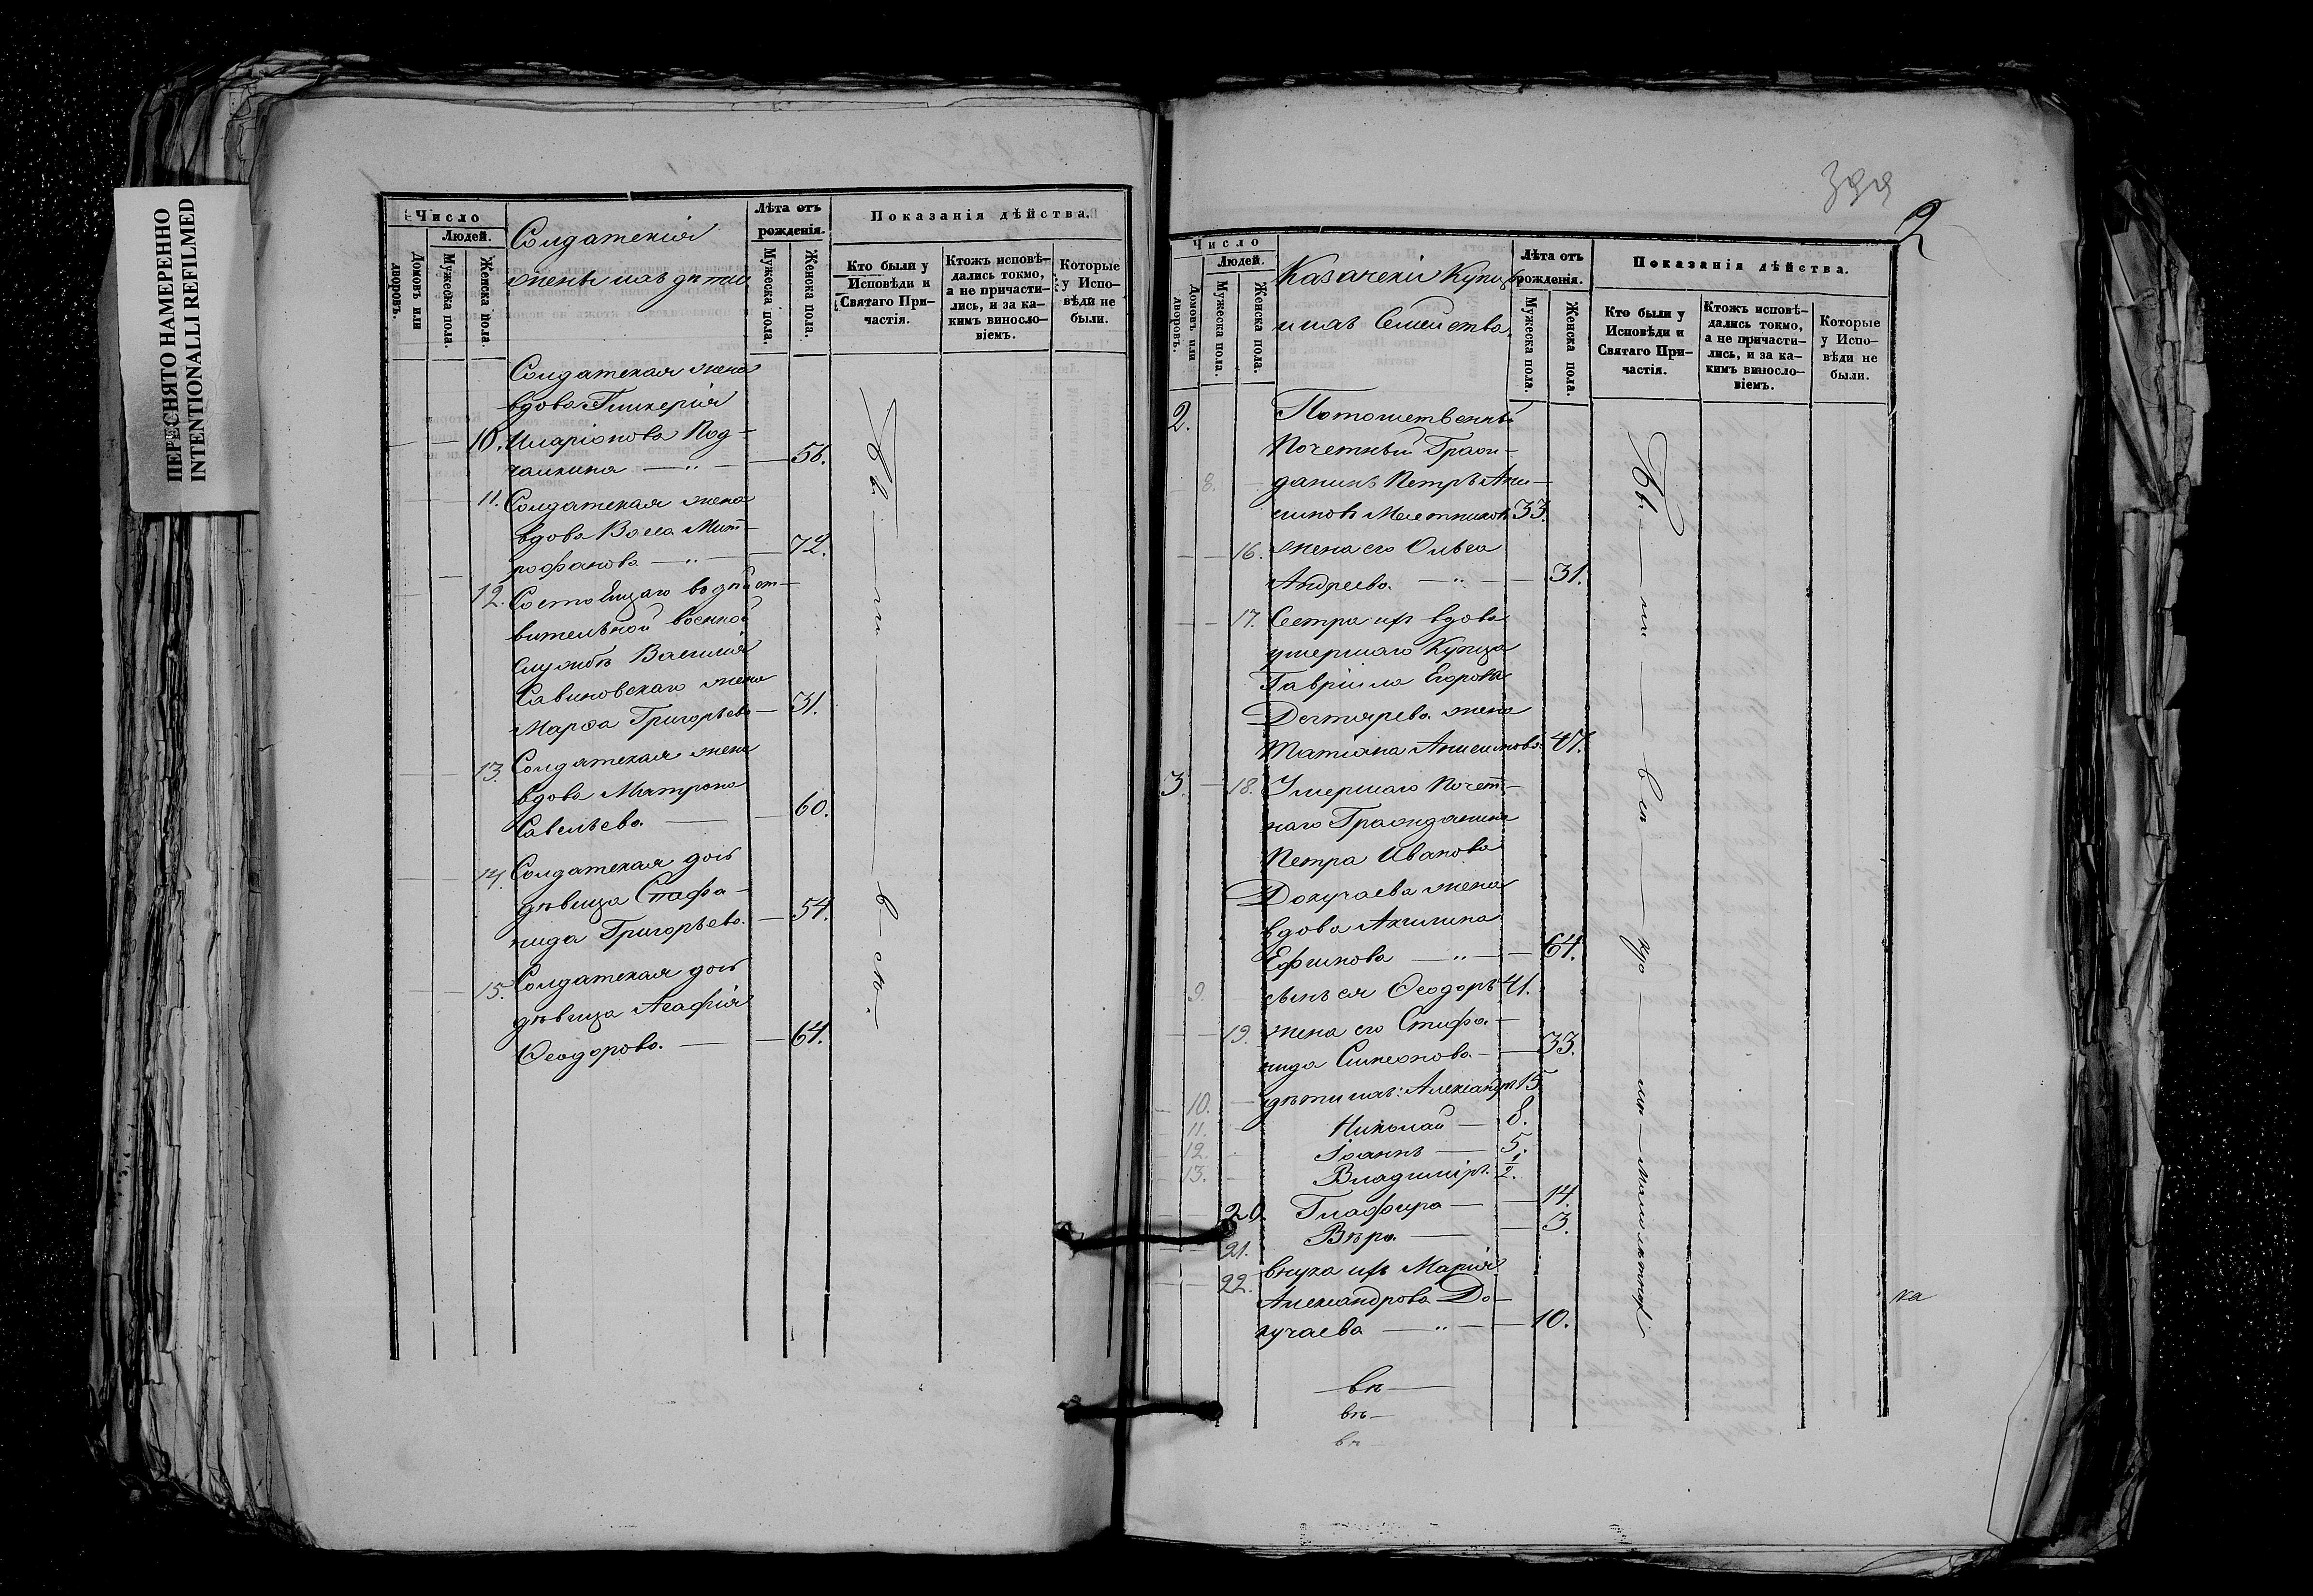 ПЕРЕСНЯТО НАМЕРЕННО
INTENTIONALLI REFILMED
Число
Людей.
Домовъ или дворовъ.
Мужеска пола.
Женска пола.
Солдатскія
жены и ихъ дѣти
Лѣта отъ
рожденія.
Мужеска пола.
Женска пола.
Показанія дѣйства.
Кто были у
Исповѣди и
Святаго При-
частія.
Ктожъ исповѣ-
дались токмо,
а не причасти-
лись, и за ка-
кимъ виносло-
віемъ.
Которые
у Испо-
вѣди не
были.
Солдатская жена
вдова Гликерія
10. Иларіонова Под-
чалкина — 56.
11. Солдатская жена
вдова Васса Мит-
рофанова — 72.
12. Состоящаго въ дѣйст-
вительной военной
службѣ Василія
Савиновскаго жена
Марѳа Григорьева — 31.
13. Солдатская жена
вдова Матрона
Савельева. — 60.
14. Солдатская дочь
дѣвица Стефа-
нида Григорьева. — 54.
15. Солдатская дочь
дѣвица Агафія
Ѳеодорова. — 64.
2
Число
Людей.
Домовъ или дворовъ.
Мужеска пола.
Женска пола.
Казачскіи Купцы
и ихъ Семейства
Лѣта отъ
рожденія.
Мужеска пола.
Женска пола.
Показанія дѣйства.
Кто были у
Исповѣди и
Святаго При-
частія.
Ктожъ исповѣ-
дались токмо,
а не причасти-
лись, и за ка-
кимъ виносло-
віемъ.
Которые
у Испо-
вѣди не
были.
2. Потомственный
Почетный Граж-
8. данинъ Петръ Ани-
симовъ 33.
16. жена его Ольга
Андреева. — 31.
17. Сестра ихъ вдова
умершаго Купца
Гавріила Егорова
Дегтярева жена
Татіана Анисимова 47.
3. 18. Умершаго Почет-
наго Гражданина
Петра Иванова
Докучаева жена
вдова Акилина
Ефимова — 64.
9. сынъ ея Ѳеодоръ 41.
19. жена его Стефа-
нида Симеонова — 33.
10. дѣти ихъ: Александръ 15
11. Николай — 8.
12. Іоаннъ — 5.
13. Владиміръ. 1/2.
20. Глафира — 14.
21. Вѣра. — 3.
22. внука ихъ Марія
Александрова До-
кучаева — 10.